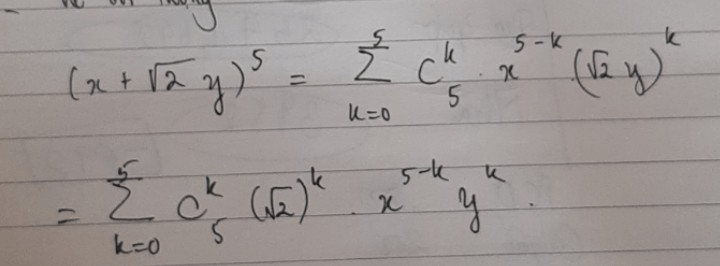 (x + √2 y)^5 = ∑_{k=0}^{5} C_5^k . x^{5-k} (√2 y)^k
= ∑_{k=0}^{5} C_5^k (√2)^k . x^{5-k} y^k .